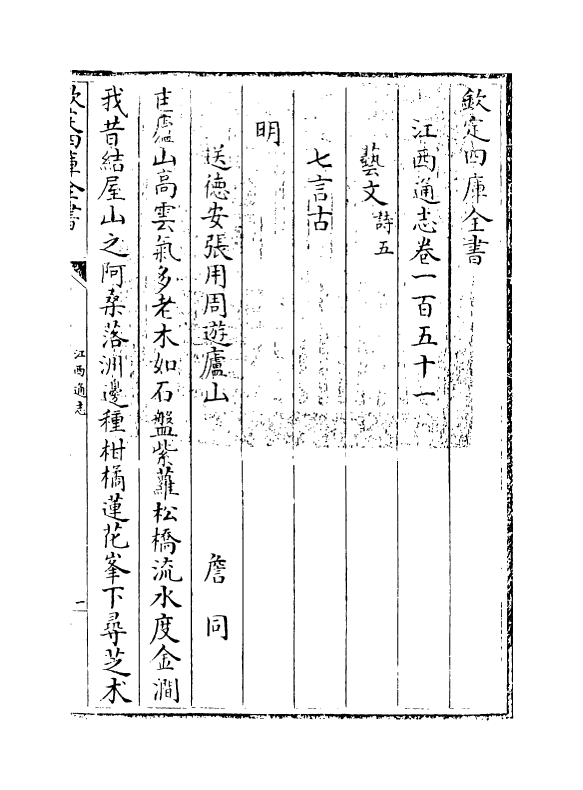 欽定四庫全書
江西通志卷一百五十一
藝文詩五
七言古
明
送德安張用周遊廬山　詹同
匡廬山高雲氣多老木如石盤紫蘿松橋流水度金澗
我昔結屋山之阿桑落洲邊種柑橘蓮花峯下尋芝术
欽定四庫全書
江西通志
一